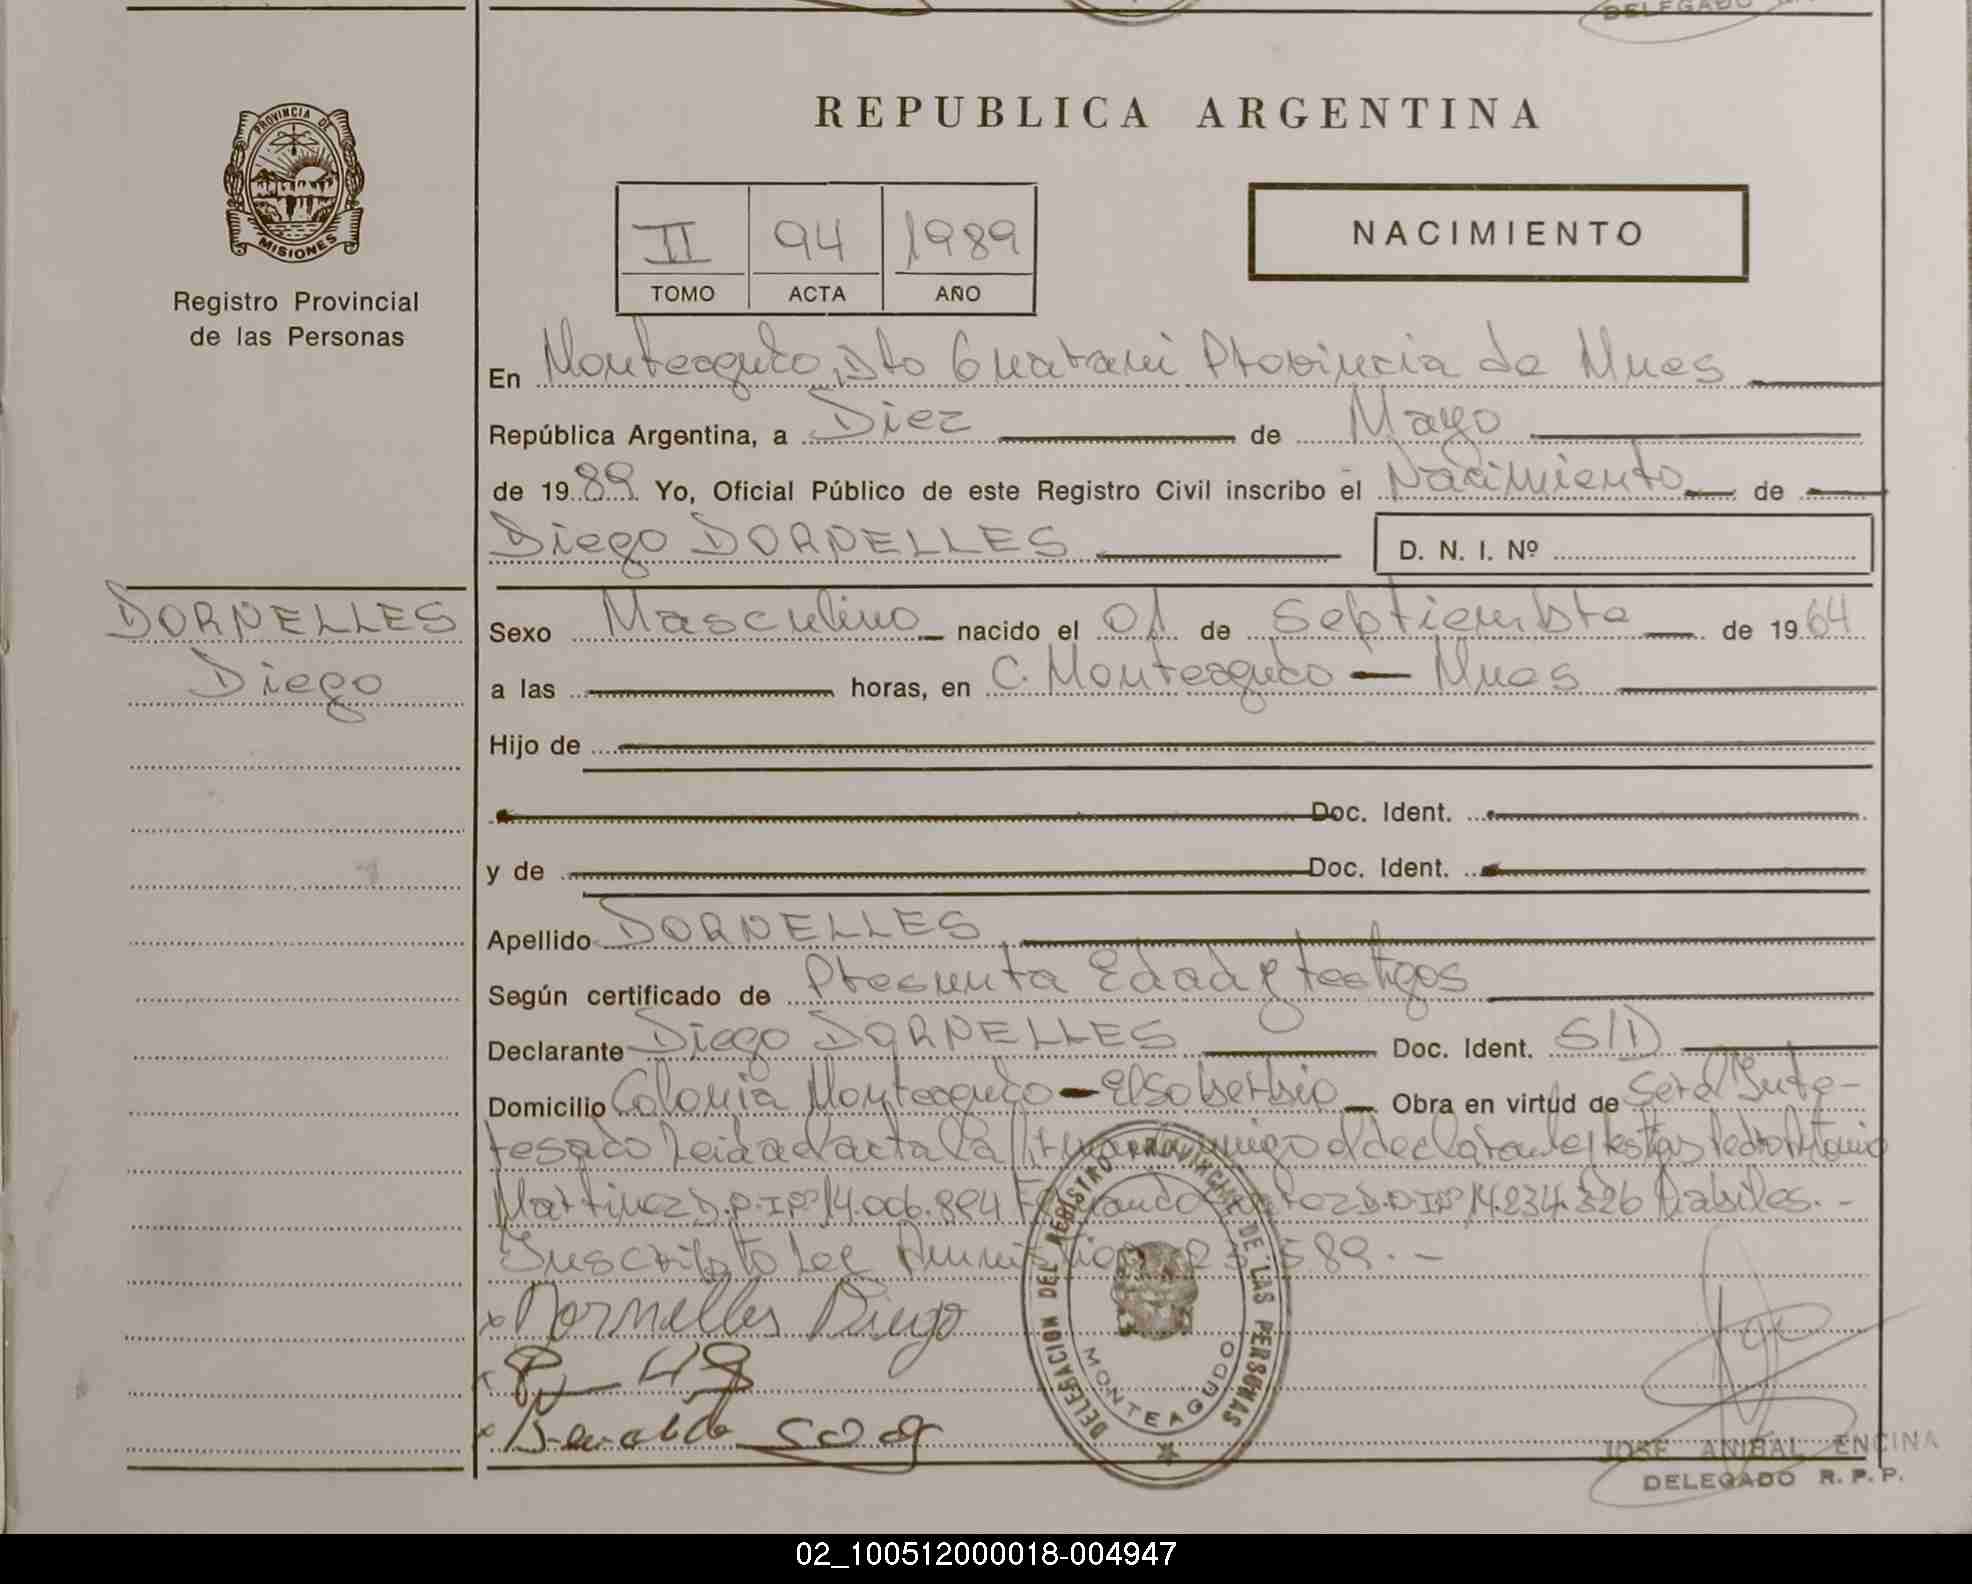 DELEGADO
PROVINCIA DE
MISIONES
Registro Provincial
de las Personas
REPUBLICA ARGENTINA
II 94 1989
TOMO ACTA AÑO
NACIMIENTO
En Monteagudo, Dto Guarani Provincia de Mnes
República Argentina, a Diez de Mayo
de 1989. Yo, Oficial Público de este Registro Civil inscribo el Nacimiento de
Diego DORNELLES
D. N. I. Nº
DORNELLES
Diego
Sexo Masculino nacido el 01 de Septiembre de 1964
a las horas, en C. Monteagudo — Mnes
Hijo de
Doc. Ident.
y de Doc. Ident.
Apellido DORNELLES
Según certificado de Presunta Edad y testigos
Declarante Diego DORNELLES Doc. Ident. S/D
Domicilio Colonia Monteagudo — El Soberbio Obra en virtud de Ser el Inte-
resado Leida el acta la firman conmigo el declarante y testigos Pedro Antonio
Martinez D.N.I Nº 14.006.894 D.N.I Nº 14.234.326 habiles. -
Inscripto Ley 89. -
x Dornelles Diego
x
x
DELEGACION DEL REGISTRO PROVINCIAL DE LAS PERSONAS
MONTEAGUDO
JOSE ANIBAL ENCINA
DELEGADO R. P. P.
02_100512000018-004947